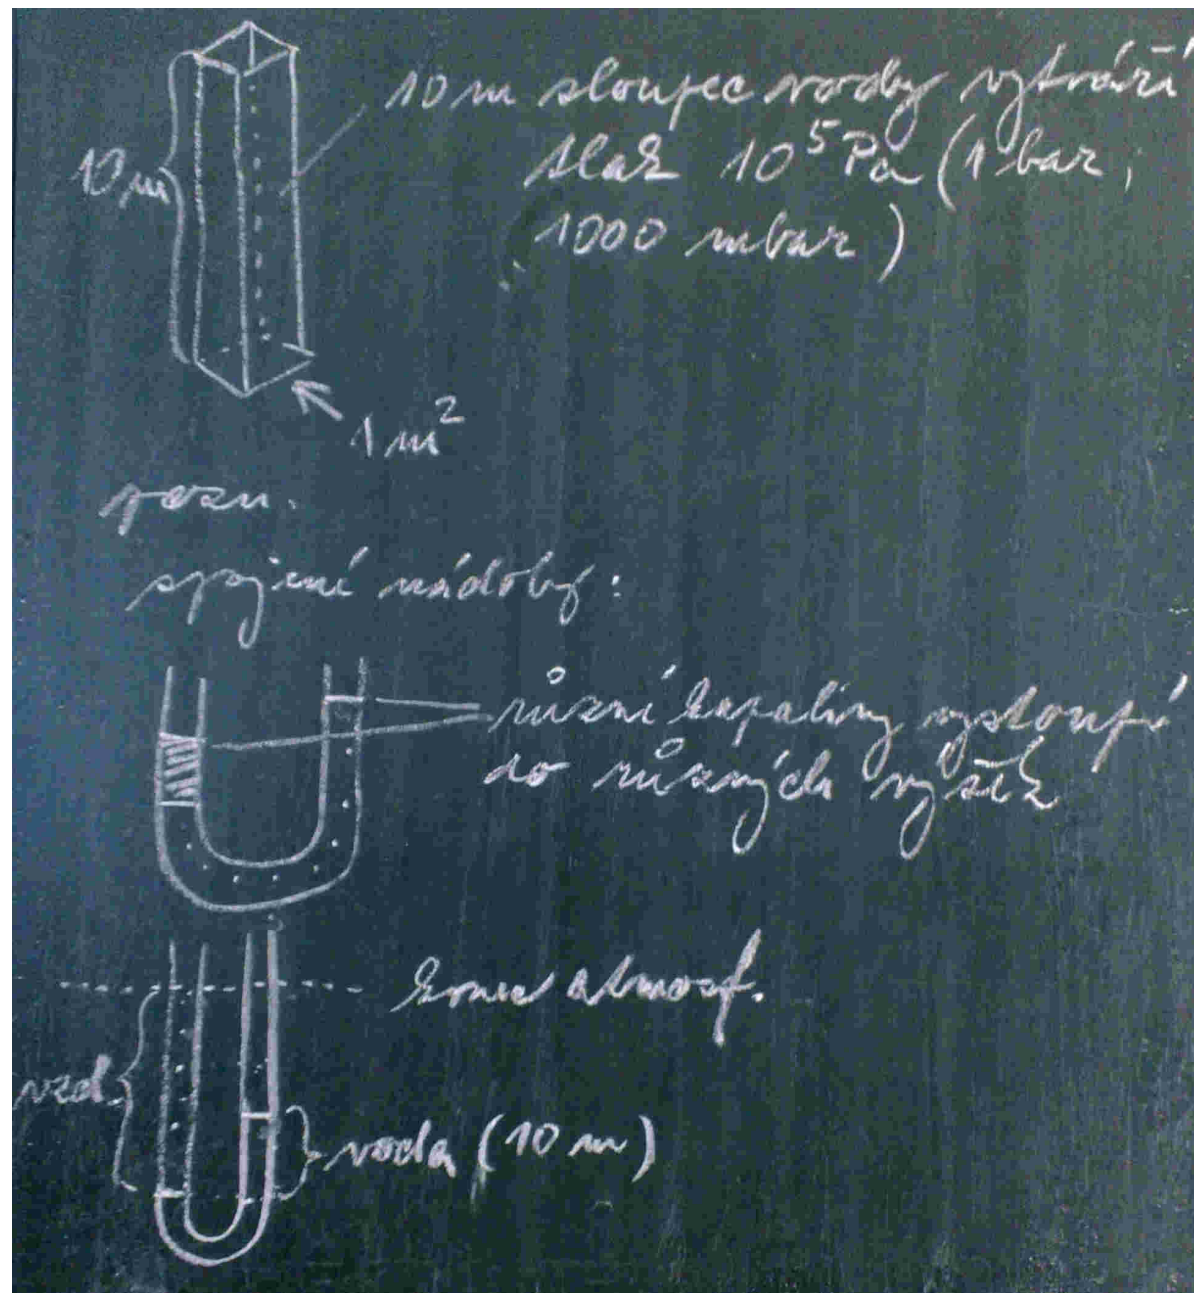 10 m sloupec vody vytváří
tlak 10⁵ Pa (1 bar,
1000 mbar)
10 m
1 m²
pozn.
spojené nádoby:
různé kapaliny vystoupí
do různých výšek
konec atmosf.
vzd
voda (10 m)